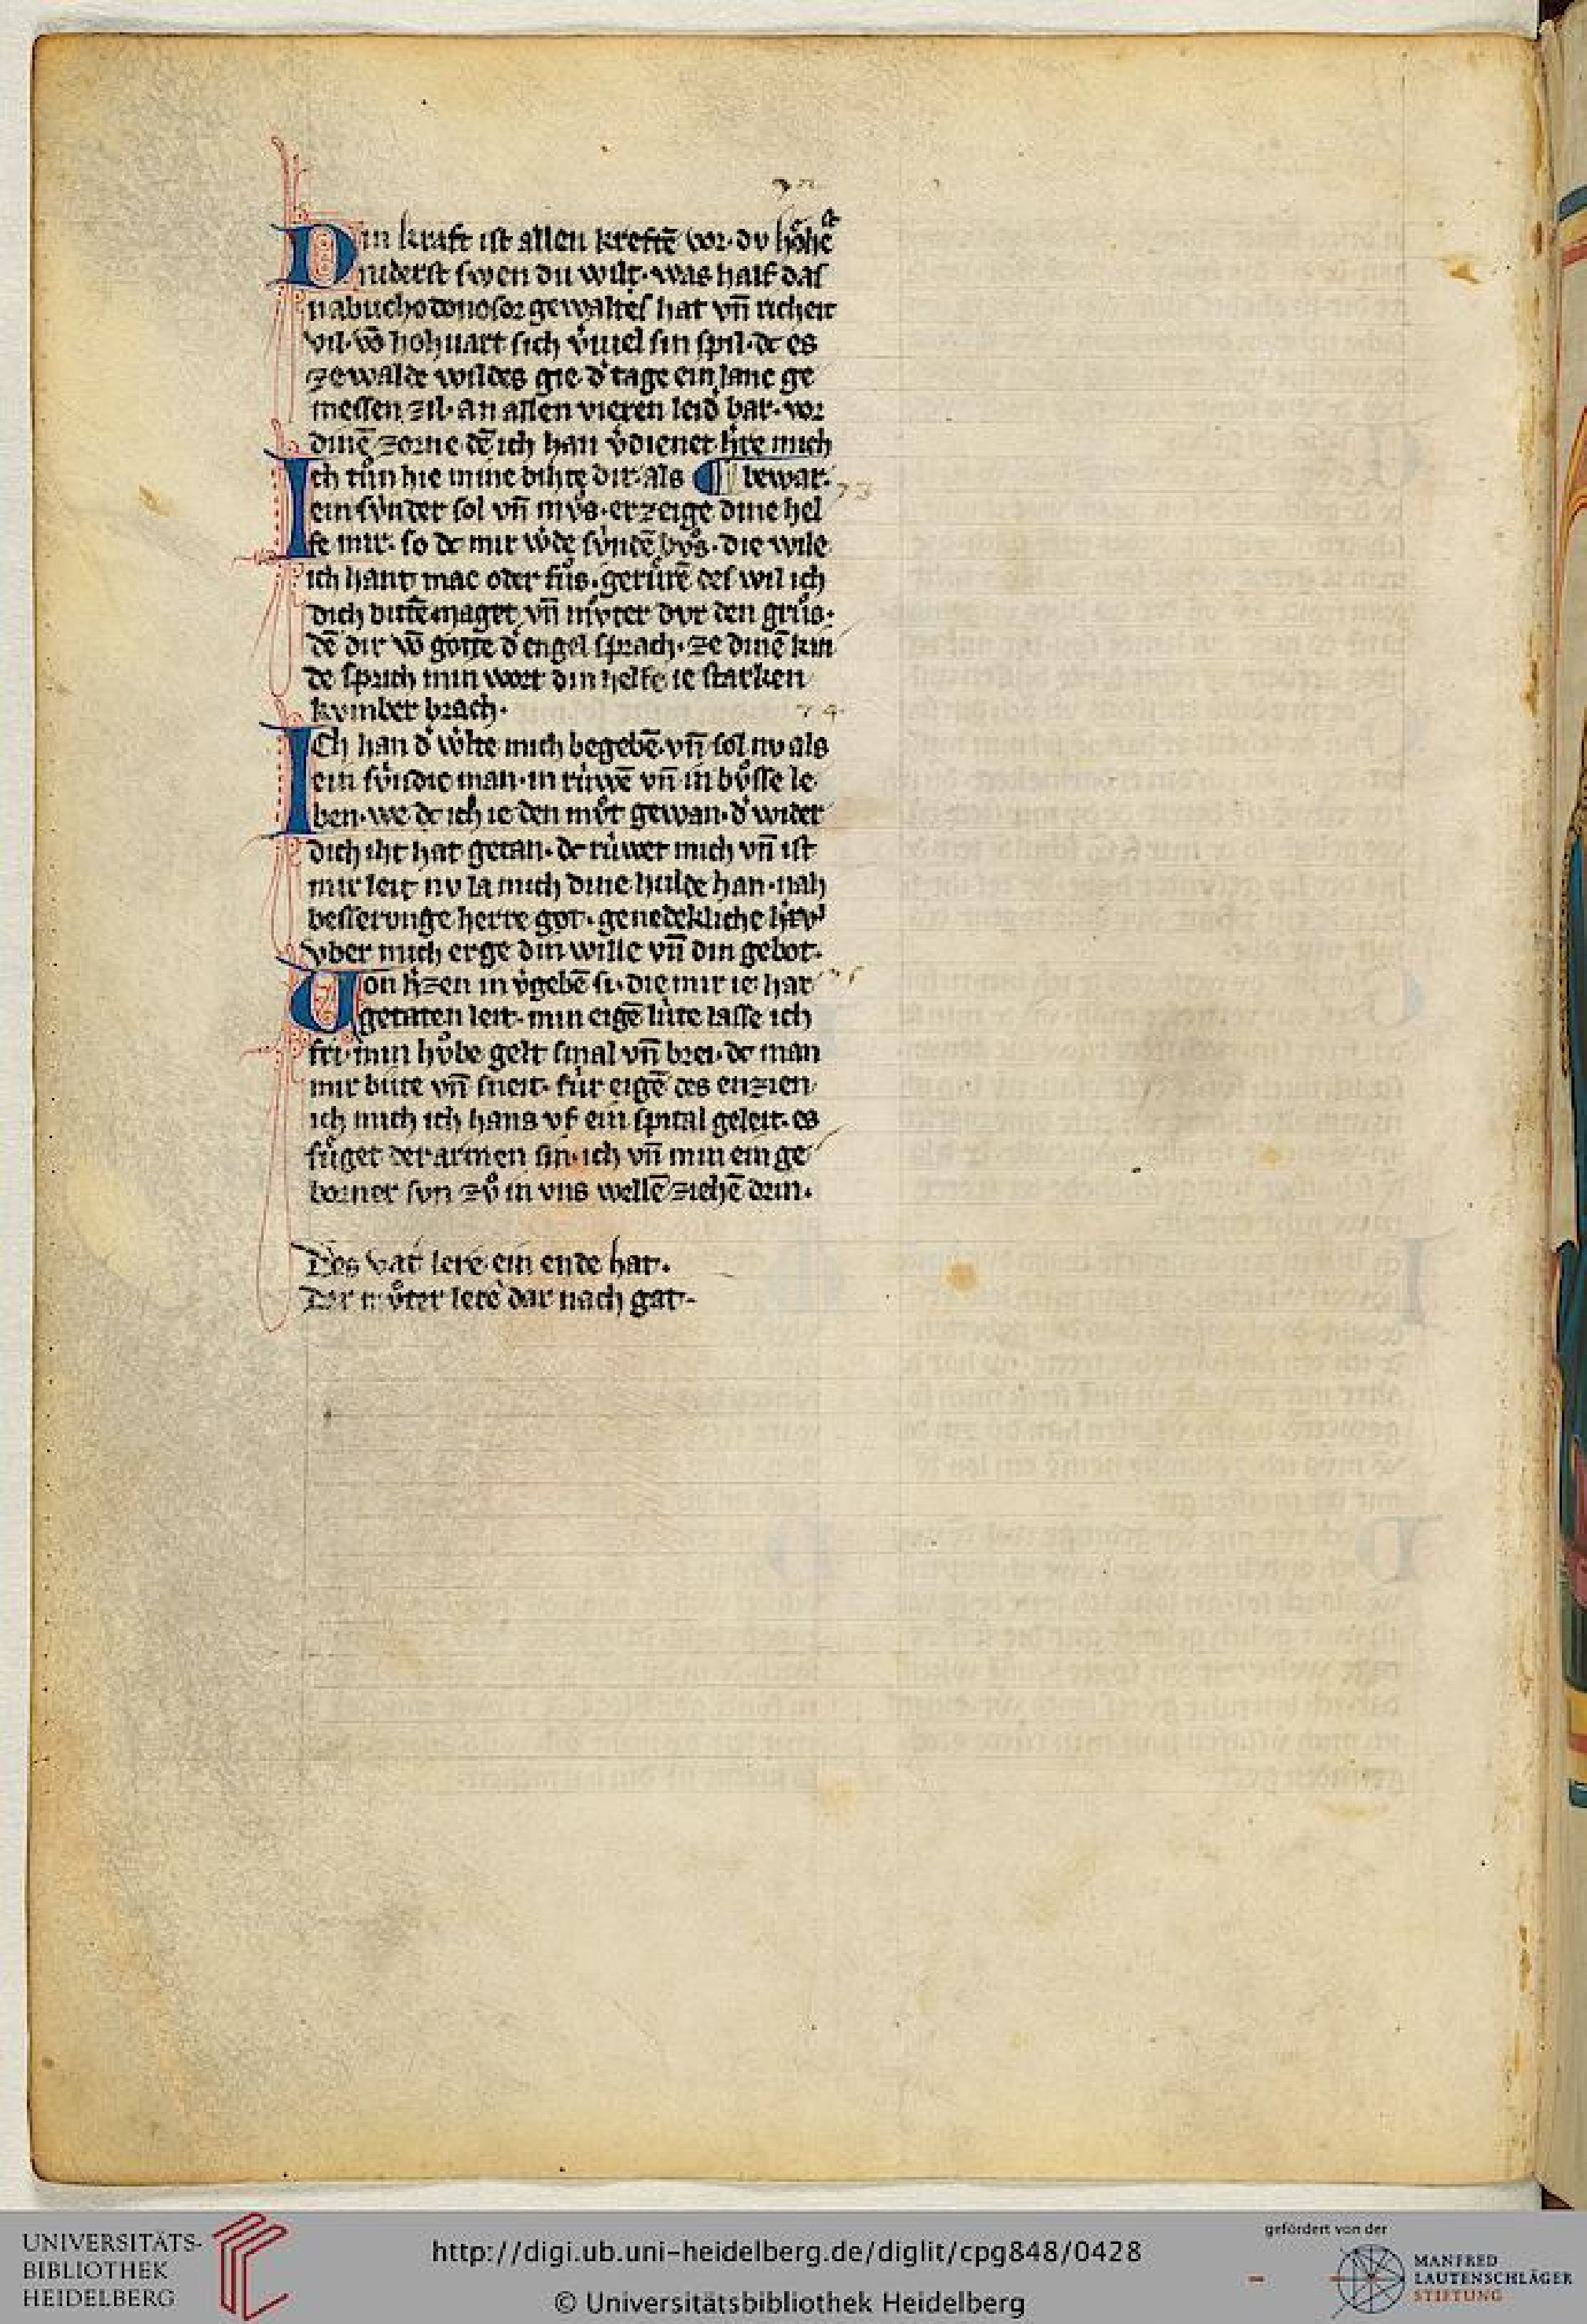 72
Din kraft ist allen kreftē vor· dv hoͤhēst
niderst swen du wilt· was half das
nabuchodonosor gewaltes hat vn̄ richeit
vil· vō hohuart sich v̓uiel sin spil· dc es
ze walde wildes gie· d̓ tage ein lanc ge
messen zil· an allen vieren leid bar· vor
dinē zorne dē ich han v̓dienet hr̄e mich
¶ bewar·
Ich tuͦn hie mine bihte dir· als
73
ein svnder sol vn̄ mvͦs· erzeige dine hel
fe mir· so dc mir w̓de svndē bvͦs· die wile
ich hant mac oder fuͦs· geruͤrē des wil ich
dich bittē maget vn̄ mvͦter dvr den gruͦs·
dē dir vō gotte d̓ engel sprach· ze dinē kin
de sprich min wort din helfe ie starken
kvmber brach·
74
Ich han d̓ w̓lte mich begebē· vn̄ sol nv als
ein svndic man· in ruwē vn̄ in bvͦsse le
ben· we dc ich ie den mvͦt gewan· d̓ wider
dich iht hat getan· dc ruwet mich vn̄ ist
mir leit nv la mich dine hulde han· nah
besserunge herre got· genedekliche
vber mich erge din wille vn̄ din gebot·
Von h̓zen in v̓gebē si· die mir ie hat
75
getaten leit· min eigē lute lasse ich
fri· min hvͦbe gelt smal vn̄ brei· dc man
mir bute vn̄ sneit· fur eigē des enzien
ich mich ich hans vf ein spital geleit· es
fuͤget der armen sin· ich vn̄ min einge
borner svn zvͦ in vns wellē ziehē drin·
Des vat̓ lere ein ende hat·
Der mvͦter lere dar nach gat·
UNIVERSITÄTS-
BIBLIOTHEK
HEIDELBERG
http://digi.ub.uni-heidelberg.de/diglit/cpg848/0428
© Universitätsbibliothek Heidelberg
gefördert von der
MANFRED
LAUTENSCHLÄGER
STIFTUNG